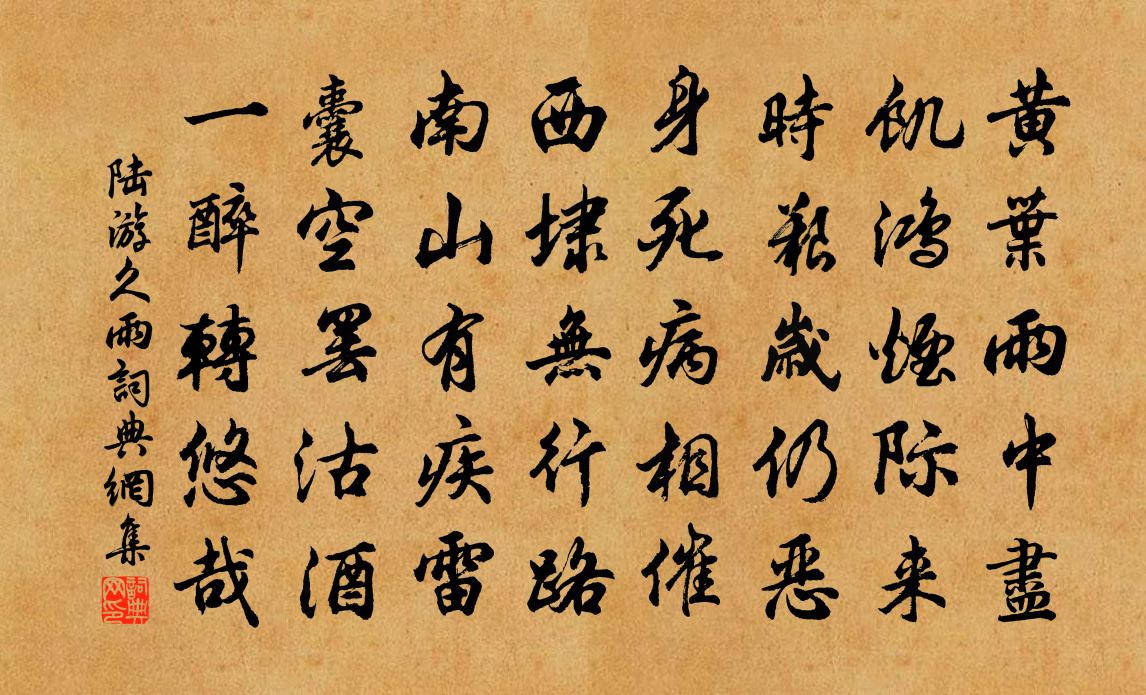 黃葉雨中盡
飢鴻煙际来
時艱歲仍恶
身死病相催
西埭無行路
南山有疾雷
囊空罢沽酒
一醉轉悠哉
陆游久雨詞典網集
詞典网印